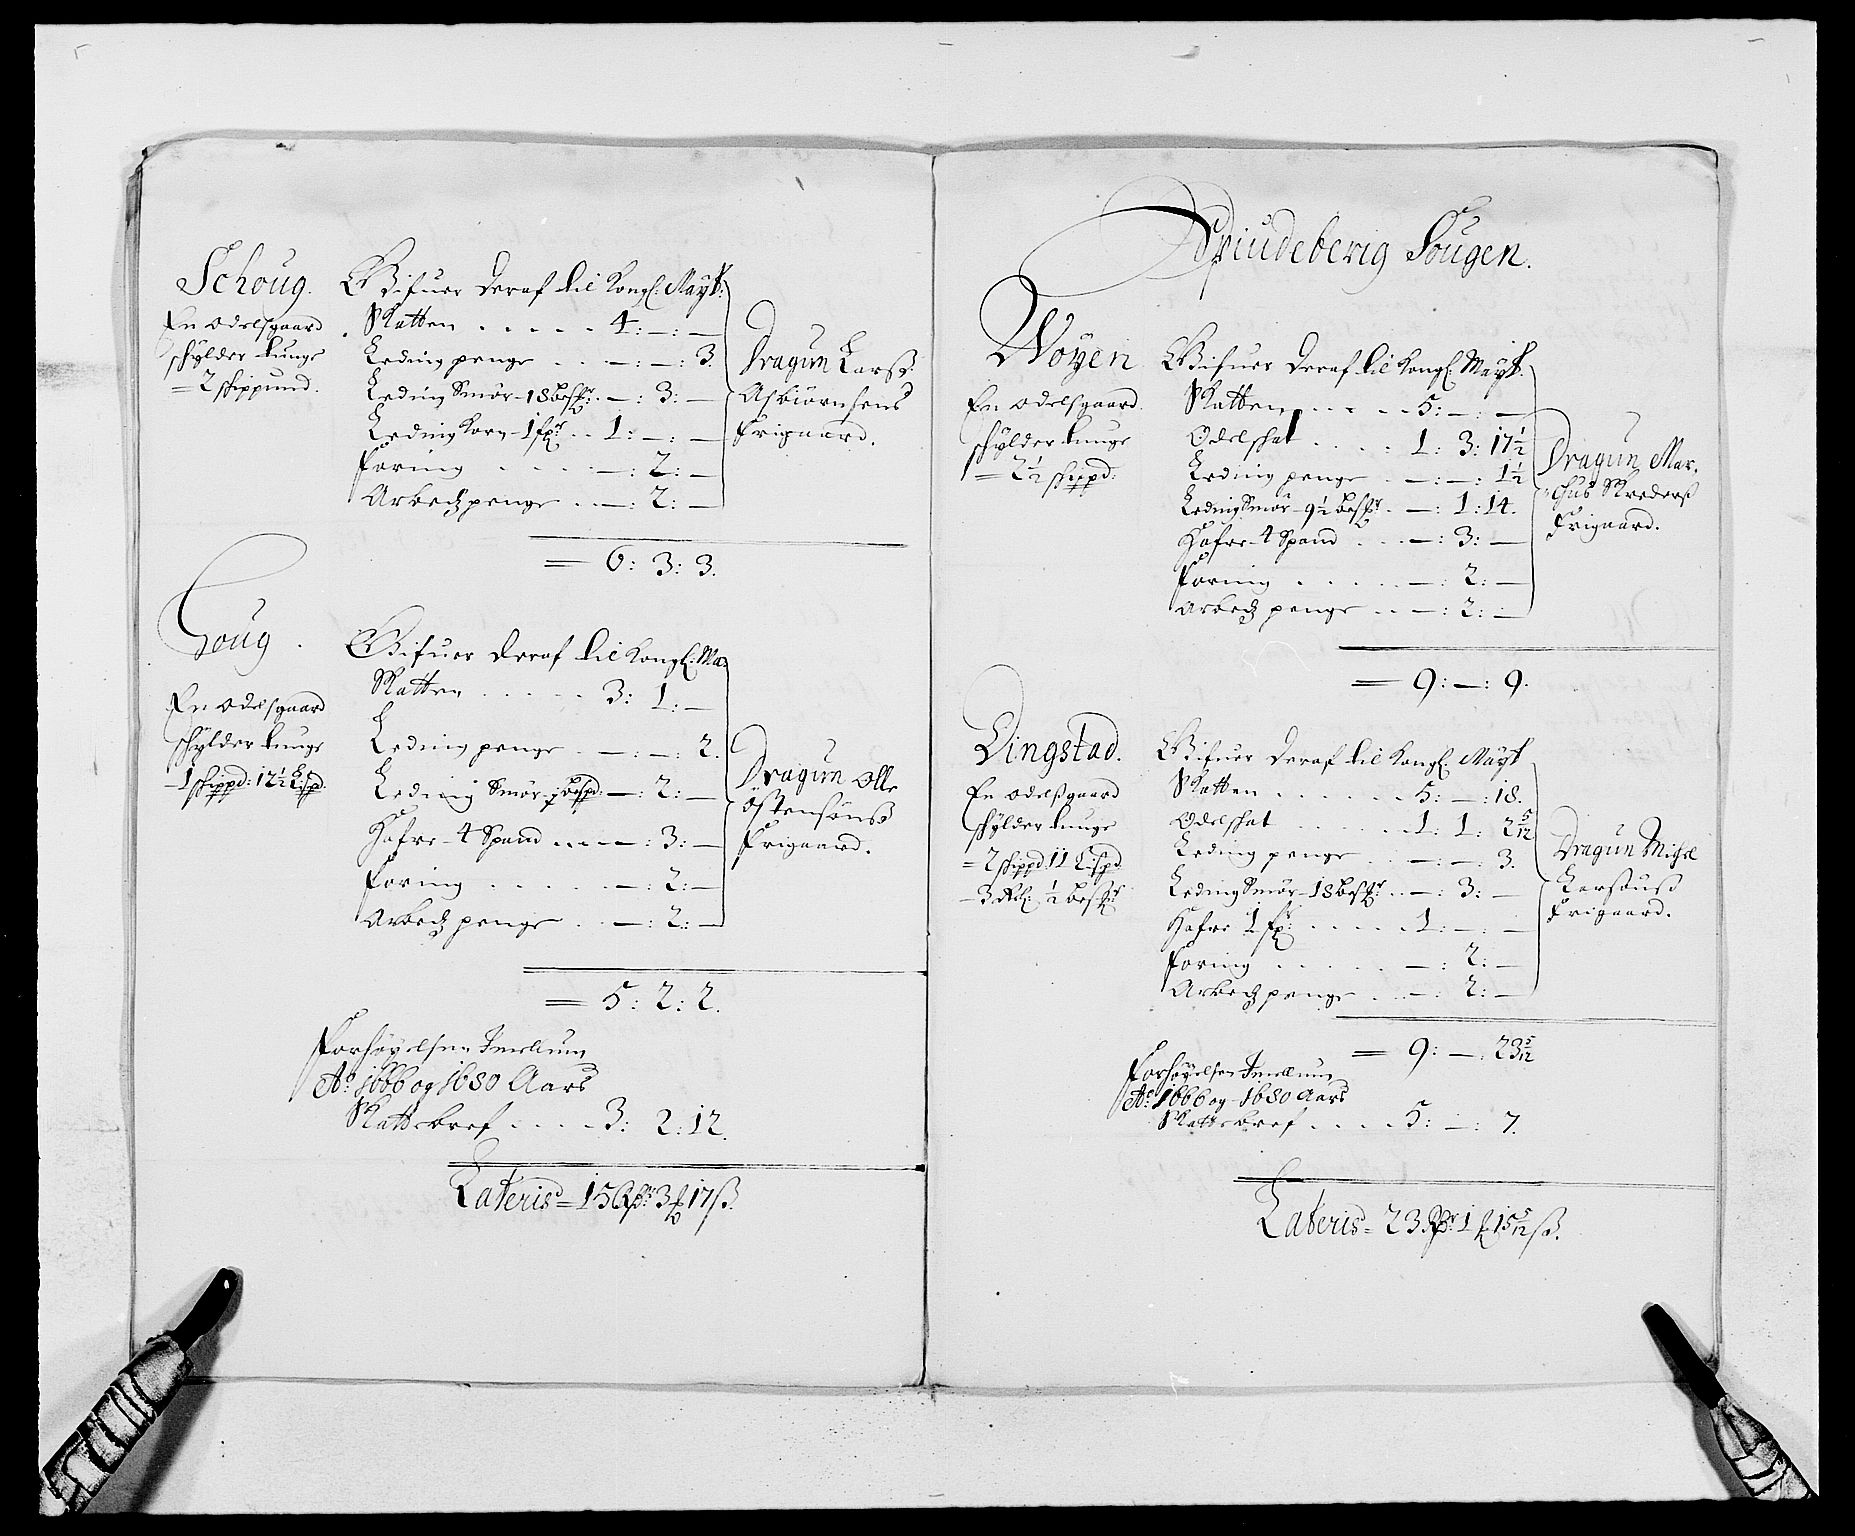 Schoug.
En Odelsgaard
schylder tunge
= 2 schippund.
Gifuer deraf til Kongl: Mayt:
Skatten . . . . . 4: — : —
Leding penge . . . — : — : 3.
Leding Smør - 18 besmr: . — : 3: —
Leding Korn - 1 spr . . 1: — : —
Foring . . . . . — : 2: —
Arbedz penge . . . — : 2: —
Dragun Larss:
Asbiørnsens
Frigaard.
= 6: 3: 3.
Houg.
En Odelsgaard
schylder tunge
- 1 schippd: 12½ Lispd
Gifuer deraf til Kongl: Ma
Skatten . . . . . 3: 1: —
Leding penge . . — : — : 2.
Leding Smør - bespd: — : 2: —
Hafre - 4 Spand . . . — : 3: —
Foring . . . . . — : 2: —
Arbedz penge . . — : 2: —
Dragun Olle
Østensønss
Frigaard.
= 5: 2: 2.
Forhøyelsen Imellum
Ao: 1666 og 1680 Aars
Skattebref . . . . 3: 2: 12.
Lateris = 15 Rdr: 3 ₰ 17 ß.
Spiudeberig Sougen.
Woyen
En Odelsgaard.
schylder tunge
= 2½ schippd:
Gifuer deraf til Kongl: Mayt:
Skatten . . . . . 5: — : —
Odelschat . . . . 1: 3: 17½
Leding penge . — : — : 1½
Leding Smør - 9½ besmr . — : 1: 14.
Hafre - 4 Spand . . . — : 3: —
Foring . . . . . — : 2: —
Arbedz penge . . — : 2: —
Dragun Mar.
chus Skrederss
Frigaard.
= 9: — : 9.
Lingstad.
En Odelssgaard
schylder tunge
= 2 schippd 11 Lispd
- 3 Rem: ½ besmr
Gifuer deraf til Kongl: Mayt
Skatten . . . . . . 5: — : 18.
Odelschat . . . . . 1: 1: 2 5/12
Leding penge . . — : — : 3.
Leding Smør - 18 besmr . . — : 3: —
Hafre 1 spr: . . . . . 1: — : —
Foring . . . . . — : 2: —
Arbedz penge . . . — : 2: —
Dragun Michel
Larsønss
Frigaard.
= 9: — : 23 5/12
Forhøyelsen Imellum
Ao: 1666 og - 1680 Aars
Skattebref . . . . 5: — : 7.
Lateris = 23 Rdr: 1 ₰ 15 5/12 ß.